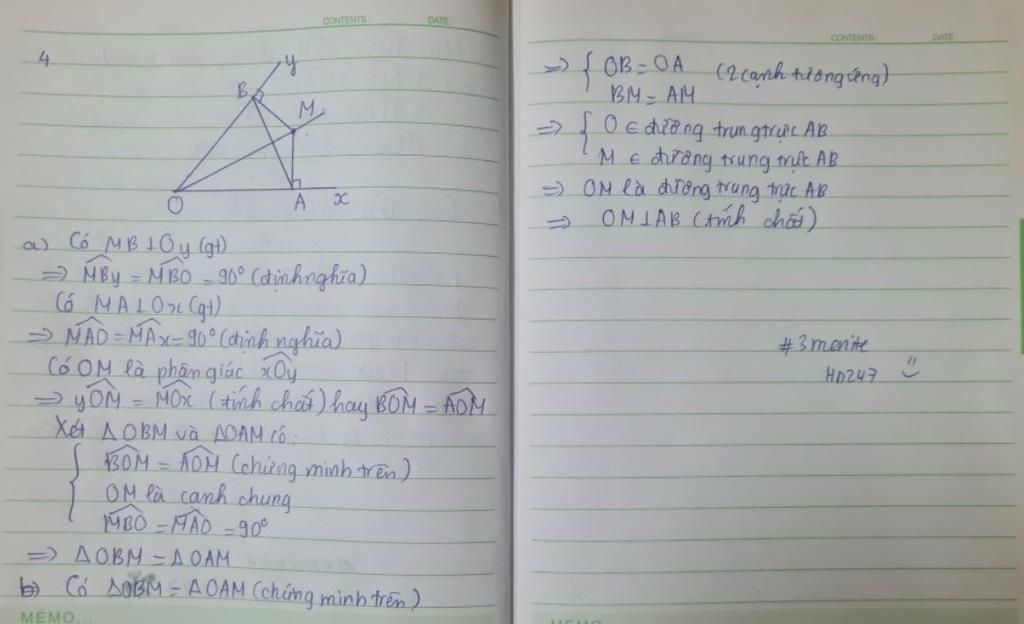 CONTENTS: DATE:
4.
y
B
M
O
A
x
a) Có MB ⊥ Oy (gt)
=> \widehat{MBy} = \widehat{MBO} = 90° (định nghĩa)
Có MA ⊥ Ox (gt)
=> \widehat{MAO} = \widehat{MAx} = 90° (định nghĩa)
Có OM là phân giác \widehat{xOy}
=> \widehat{yOM} = \widehat{MOx} (tính chất) hay \widehat{BOM} = \widehat{AOM}
Xét △OBM và △OAM có:
{ \widehat{BOM} = \widehat{AOM} (chứng minh trên)
OM là cạnh chung
\widehat{MBO} = \widehat{MAO} = 90°
=> △OBM = △OAM
b) Có △OBM = △OAM (chứng minh trên)
MEMO...
CONTENTS: DATE:
=> { OB = OA (2 cạnh tương ứng)
BM = AM
=> { O ∈ đường trung trực AB
M ∈ đường trung trực AB
=> OM là đường trung trực AB
=> OM ⊥ AB (tính chất)
#3menite
HD247
MEMO...